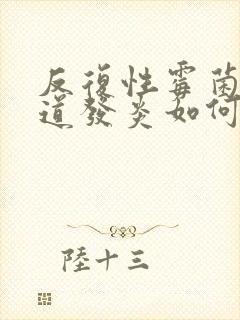 反復性霉菌
道發炎如何
陸十三